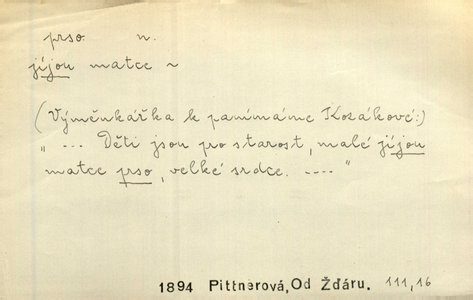 prso n.
jíjou matce ~
(Výměnkářka k panímámě Kozákové:)
" ... Děti jsou pro starost, malé jíjou
matce prso, velké srdce. .... "
1894 Pittnerová, Od Žďáru. 111,16